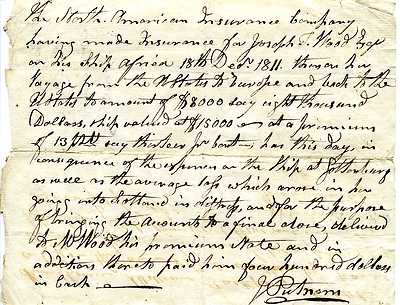 The North American Insurance Company
having made Insurance for Joseph T. Wood Esqr
on his ship Africa 18th Decr. 1811. thereon her
Voyage from the UStates to Europe and back to the
UStates to amount of $8000 say eight thousand
Dollars, ship valued at $15000 at a premium
of 13 say thirteen pr Cent has this day, in
consequence of the expences on the Ship at Gottenburg
as well as the average loss which arose in her
going into Scotland in distress, and for the purpose
of bringing the accounts to a final close, delivered
to Mr Wood his premium Note and in
addition thereto paid him four hundred dollars
in Cash.
J Putnam